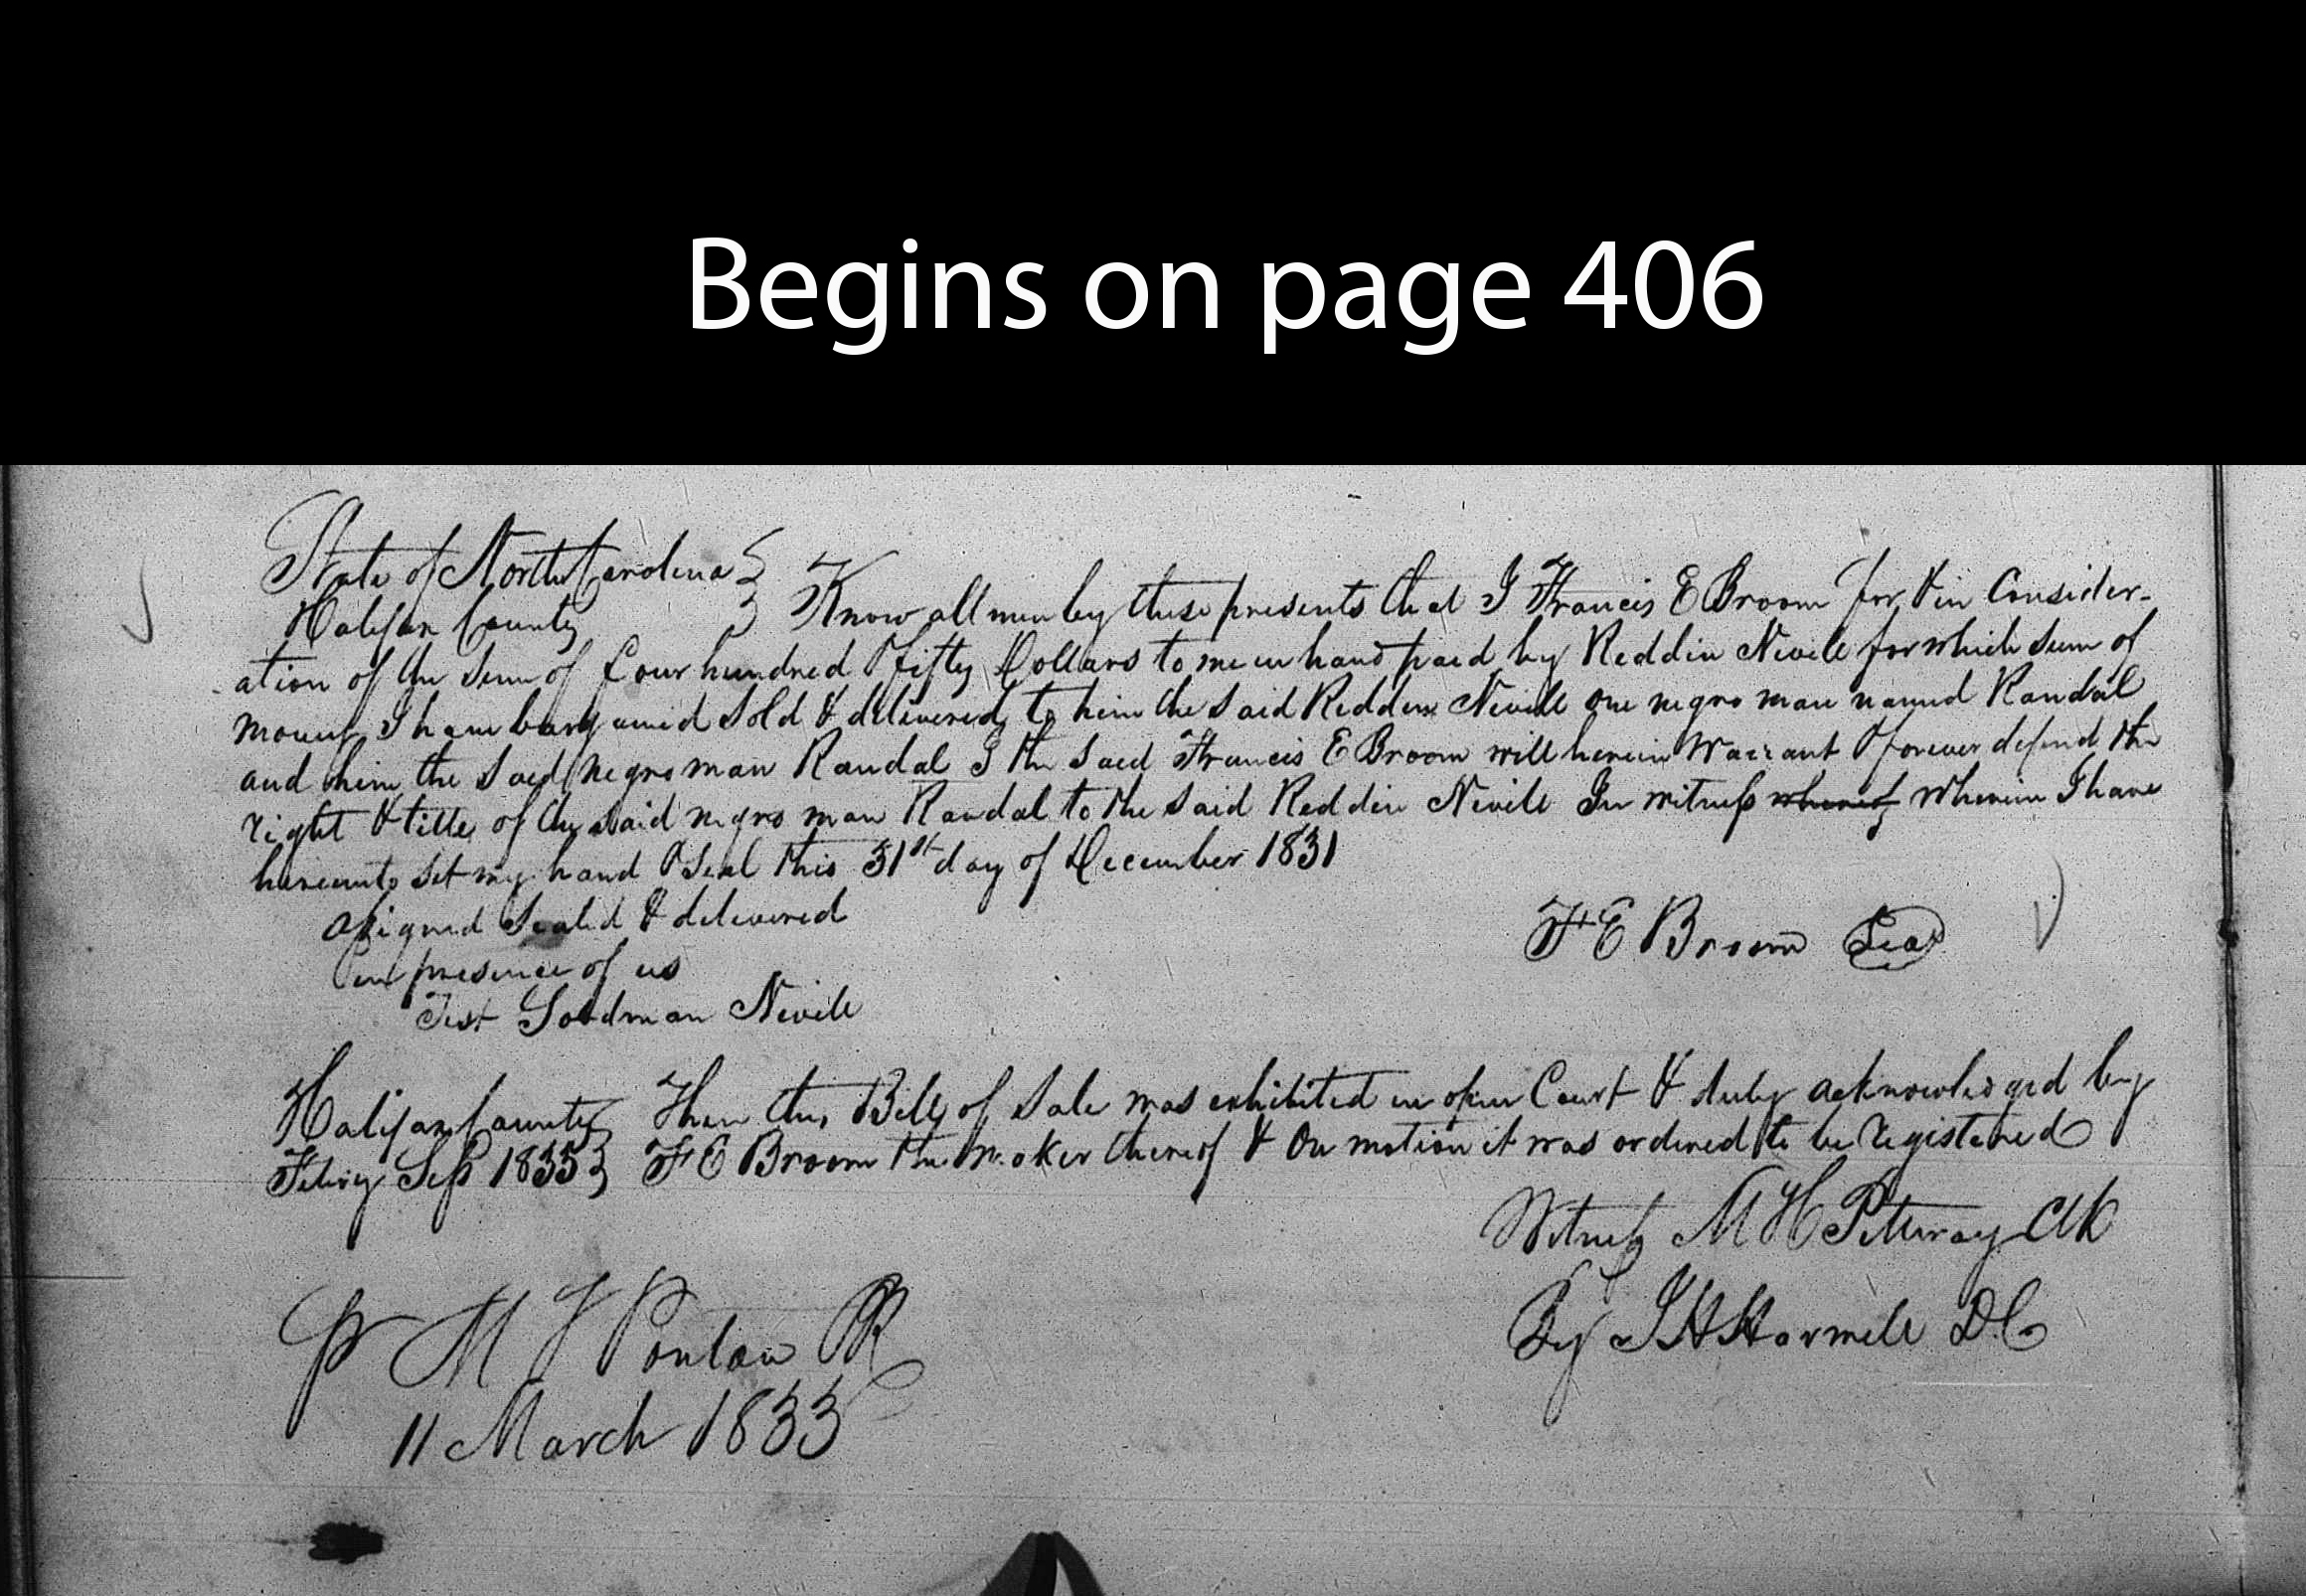 Begins on page 406
State of North Carolina
Halifax County Know all men by these presents that I Francis E Broom for & in Consider-
ation of the sum of four hundred & fifty Dollars to me in hand paid by Reddin Nevill for which sum of
money I have bargained sold & delivered to him the said Reddin Nevill one negro man named Randal
and him the said negro man Randal I the said Francis E Broom will herein Warrant & forever defend the
right & title of the said negro man Randal to the said Reddin Nevill In witness whereof wherein I have
hereunto set my hand & seal this 31st day of December 1831
Signed Sealed & delivered
in presence of us F E Broom Seal
Test Goodman Nevill
Halifax County Then this Bill of Sale was exhibited in open Court & duly acknowledged by
Feby Sess 1833 F E Broom the maker thereof & On motion it was ordered to be registered
Witness M H Pettway Clk
By J H Harwell D.C.
Pr M J Ponton PR
11 March 1833